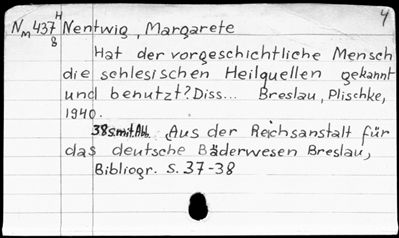 4
N_m 437 H/8 Nentwig, Margarete
Hat der vorgeschichtliche Mensch
die schlesischen Heilquellen gekannt
und benutzt? Diss... Breslau, Plischke,
1940.
38 S. mit Abb. Aus der Reichsanstalt für
das deutsche Bäderwesen Breslau,
Bibliogr. S. 37-38